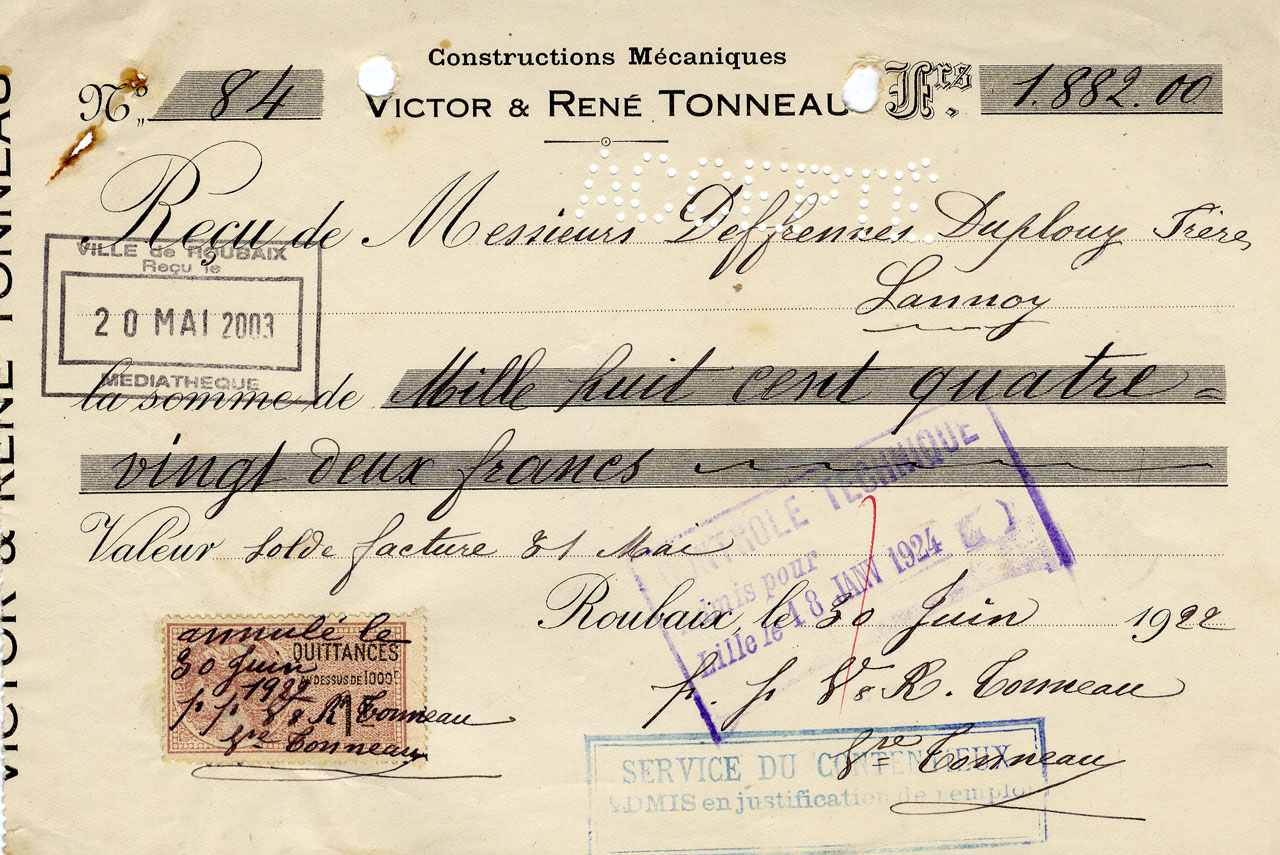 Constructions Mécaniques
VICTOR & RENÉ TONNEAU
N° 84
Frs. 1.882.00
ACCEPTÉ
Reçu de Messieurs Deffrennes Duplouy Frères
Lannoy
VILLE de ROUBAIX
Reçu le
20 MAI 2003
MEDIATHEQUE
la somme de Mille huit cent quatre-
vingt deux francs
Valeur solde facture 31 Mai
CONTROLE TECHNIQUE
Admis pour
Lille le 18 JANV 1924
Roubaix, le 30 Juin 1922
p. p. V & R. Tonneau
Tonneau
QUITTANCES
AU DESSUS DE 1000F
1F
annulé le
30 Juin
1922
p. p. V & R Tonneau
Tonneau
SERVICE DU CONTENTIEUX
ADMIS en justification de remploi
VICTOR & RENÉ TONNEAU